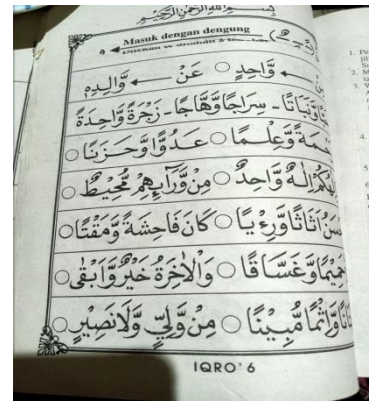 بِسْمِ اللهِ الرَّحْمٰنِ الرَّحِيْمِ
Masuk dengan dengung
وَّاحِدٍ ○ عَنْ ← وَّالِدِهٖ
وَّنَبَاتًا - سِرَاجًا وَّهَّاجًا - زَجْرَةٌ وَّاحِدَةٌ
وَّعِلْمًا ○ عَدُوًّا وَّحَزَنًا ○
اِلٰهٌ وَّاحِدٌ ○ مِنْ وَّرَآئِهِمْ مُّحِيْطٌ ○
اَثَاثًا وَّرِءْيًا ○ كَانَ فَاحِشَةً وَّمَقْتًا ○
حَمِيْمًا وَّغَسَّاقًا ○ وَالْاٰخِرَةُ خَيْرٌ وَّاَبْقٰى ○
وَّاِثْمًا مُّبِيْنًا ○ مِنْ وَّلِيٍّ وَّلَا نَصِيْرٍ ○
IQRO' 6